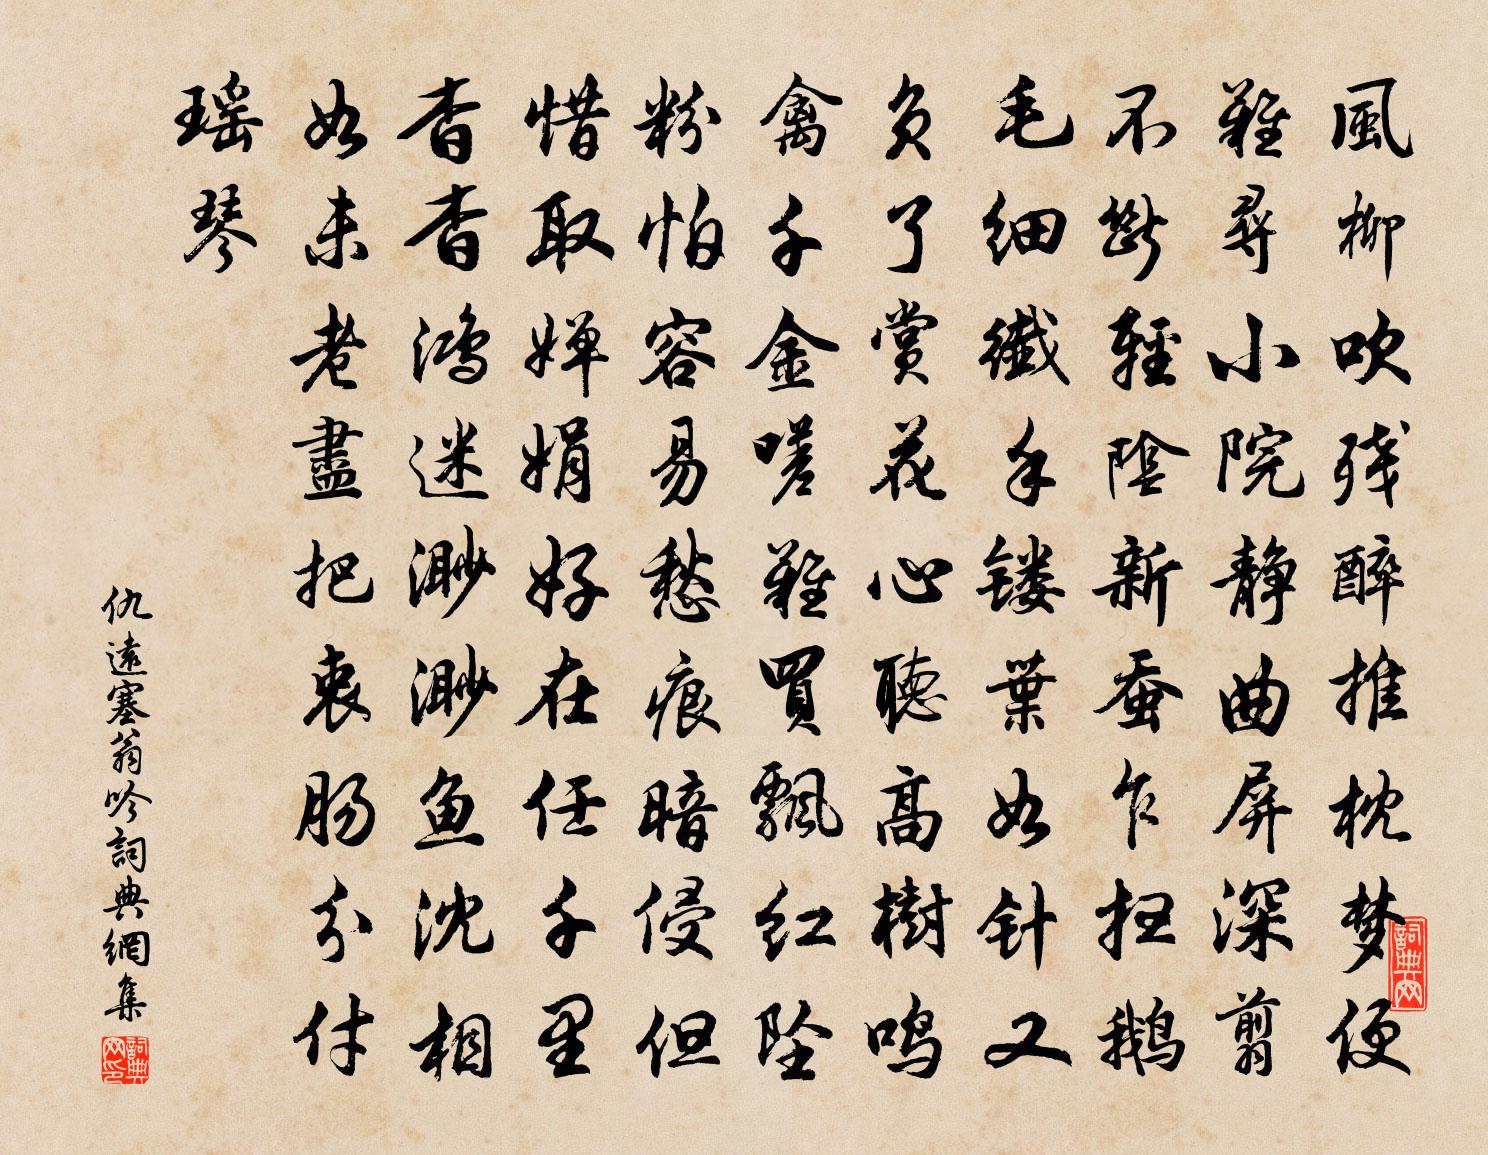 風柳吹残醉推枕梦便
難尋小院静曲屏深翦
不斷輕陰新蚕乍扭鹅
毛细纖手镂葉如针又
负了賞花心聽高樹鸣
禽千金嗟難買飄红坠
粉怕容易愁痕暗侵但
惜取婵娟好在任千里
杳杳鸿迷渺渺鱼沈相
如未老盡把衷肠分付
瑶琴
仇遠塞翁吟詞典網集
詞典网
詞典网印